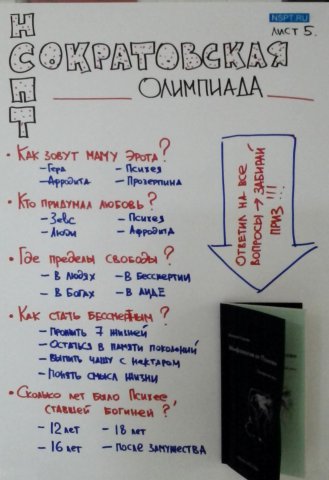 NSPT.RU
ЛИСТ 5.
НСПТ
СОКРАТОВСКАЯ
ОЛИМПИАДА
• КАК ЗОВУТ МАМУ ЭРОТА?
– ГЕРА
– ПСИХЕЯ
– АФРОДИТА
– ПРОЗЕРПИНА
• КТО ПРИДУМАЛ ЛЮБОВЬ?
– ЗЕВС
– ПСИХЕЯ
– ЛЮДИ
– АФРОДИТА
• ГДЕ ПРЕДЕЛЫ СВОБОДЫ?
– В ЛЮДЯХ
– В БЕССМЕРТИИ
– В БОГАХ
– В АИДЕ
• КАК СТАТЬ БЕССМЕРТНЫМ?
– ПРОЖИТЬ 7 ЖИЗНЕЙ
– ОСТАТЬСЯ В ПАМЯТИ ПОКОЛЕНИЙ
– ВЫПИТЬ ЧАШУ С НЕКТАРОМ
– ПОНЯТЬ СМЫСЛ ЖИЗНИ
• СКОЛЬКО ЛЕТ БЫЛО ПСИХЕЕ,
СТАВШЕЙ БОГИНЕЙ?
– 12 ЛЕТ
– 18 ЛЕТ
– 16 ЛЕТ
– ПОСЛЕ ЗАМУЖЕСТВА
ОТВЕТИЛ НА ВСЕ
ВОПРОСЫ → ЗАБИРАЙ
ПРИЗ!!!